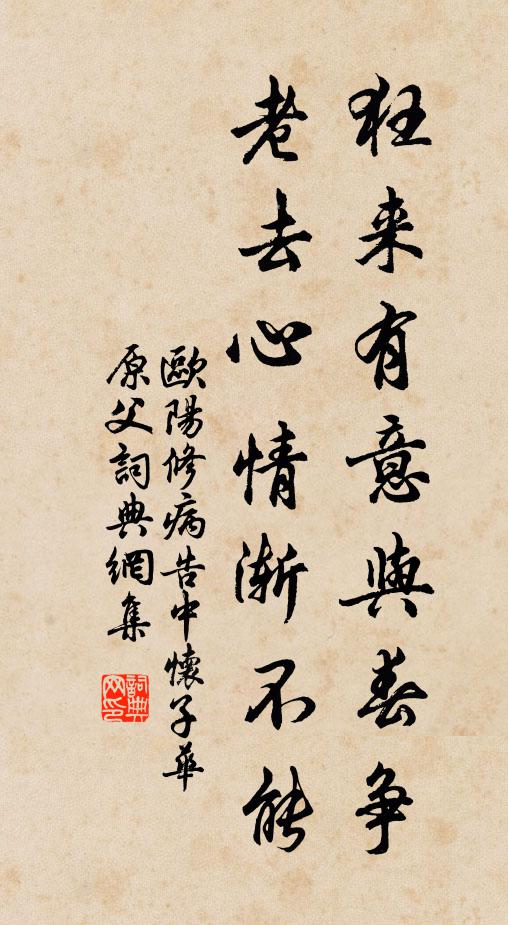 狂来有意與春争
老去心情漸不能
歐陽修病告中懷子華
原父詞典網集
詞典网印